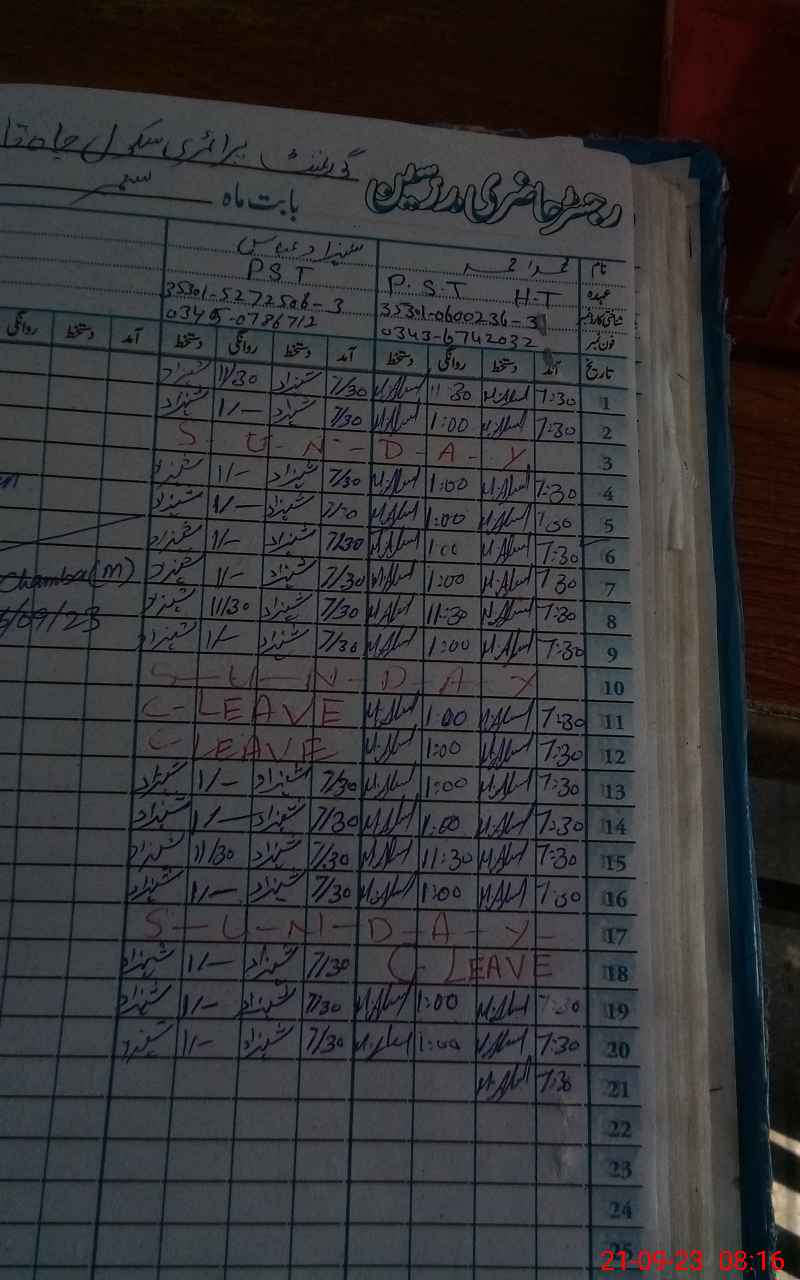 گورنمنٹ پرائمری سکول چاہ
رجسٹر حاضری مدرسین بابت ماہ ستمبر
نام
عہدہ P.S.T H.T PST
شناختی کارڈ نمبر 35301-0600236-3 35301-5272506-3
فون نمبر 0343-6742032 03405-0786712
تاریخ آمد دستخط روانگی دستخط آمد دستخط روانگی دستخط آمد دستخط روانگی
1 7:30 M.Aslam 11:30 M.Aslam 7/30 شہزاد 11/30 شہزاد
2 7:30 M.Aslam 1:00 M.Aslam 7/30 شہزاد 1/- شہزاد
3 S-U-N-D-A-Y
4 7:30 M.Aslam 1:00 M.Aslam 7/30 شہزاد 1/- شہزاد
5 M.Aslam 1:00 M.Aslam شہزاد 1/- شہزاد
6 7:30 M.Aslam 1:00 M.Aslam 7/30 شہزاد 1/- شہزاد
7 7:30 M.Aslam 1:00 M.Aslam 7/30 شہزاد 1/- شہزاد Chamba(M)
8 7:30 M.Aslam 11:30 M.Aslam 7/30 شہزاد 11/30 شہزاد /09/23
9 7:30 M.Aslam 1:00 M.Aslam 7/30 شہزاد 1/- شہزاد
10 S-U-N-D-A-Y
11 7:30 M.Aslam 1:00 M.Aslam C-LEAVE
12 7:30 M.Aslam 1:00 M.Aslam C-LEAVE
13 7:30 M.Aslam 1:00 M.Aslam 7/30 شہزاد 1/- شہزاد
14 7:30 M.Aslam 1:00 M.Aslam 7/30 شہزاد 1/- شہزاد
15 7:30 M.Aslam 11:30 M.Aslam 7/30 شہزاد 11/30 شہزاد
16 M.Aslam 1:00 M.Aslam 7/30 شہزاد 1/- شہزاد
17 S-U-N-D-A-Y
18 C-LEAVE 7/30 شہزاد 1/- شہزاد
19 7:30 M.Aslam 1:00 M.Aslam 7/30 شہزاد 1/- شہزاد
20 7:30 M.Aslam 1:00 M.Aslam 7/30 شہزاد 1/- شہزاد
21 7:30 M.Aslam
22
23
24
25
21-09-23 08:16